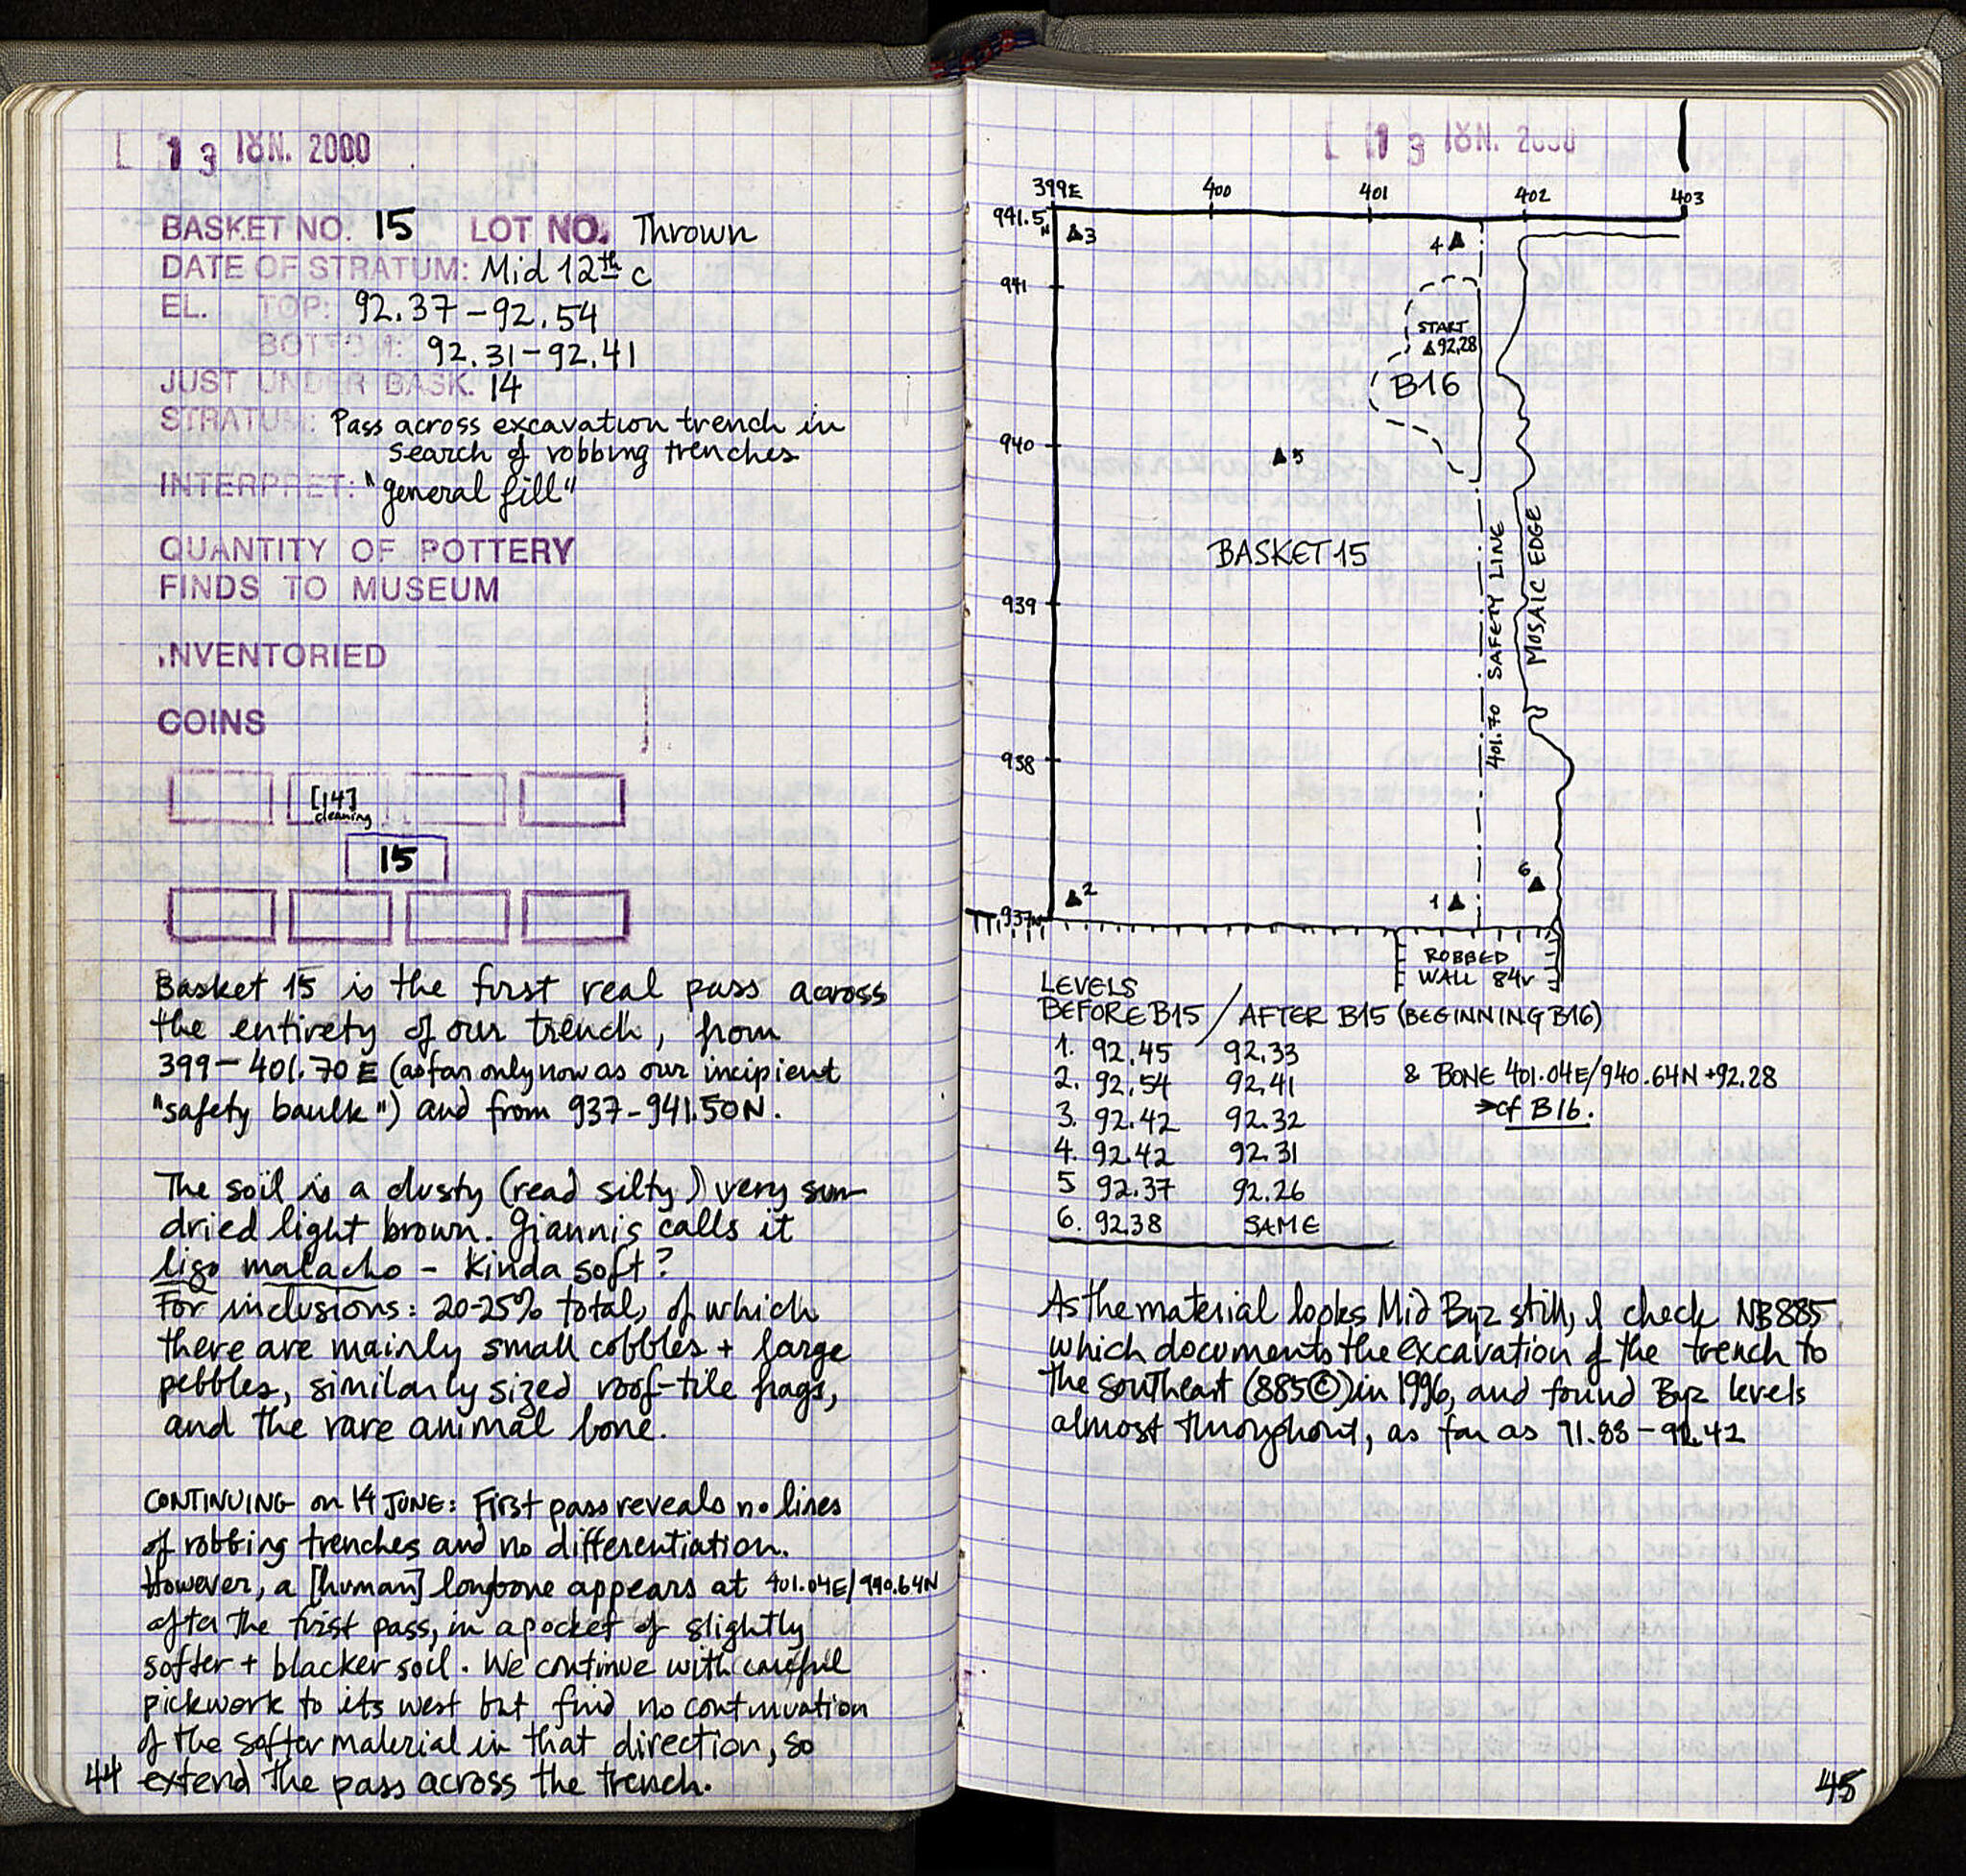 13 ΙΟΥΝ. 2000
BASKET NO. 15 LOT NO. Thrown
DATE OF STRATUM: Mid 12th c
EL. TOP: 92.37 - 92.54
BOTTOM: 92.31 - 92.41
JUST UNDER BASK. 14
STRATUM: Pass across excavation trench in
search of robbing trenches
INTERPRET: "general fill"
QUANTITY OF POTTERY
FINDS TO MUSEUM
INVENTORIED
COINS
[14]
cleaning
15
Basket 15 is the first real pass across
the entirety of our trench, from
399 - 401.70 E (as far only now as our incipient
"safety baulk") and from 937 - 941.50N.
The soil is a dusty (read silty) very sun-
dried light brown. Giannis calls it
ligo malacho - kinda soft?
For inclusions: 20-25% total, of which
there are mainly small cobbles + large
pebbles, similarly sized roof-tile frags,
and the rare animal bone.
CONTINUING on 14 JUNE: First pass reveals no lines
of robbing trenches and no differentiation.
However, a [human] longbone appears at 401.04E/940.64N
after the first pass, in a pocket of slightly
softer + blacker soil. We continue with careful
pickwork to its west but find no continuation
of the softer material in that direction, so
extend the pass across the trench.
44
13 ΙΟΥΝ. 2000
399E 400 401 402 403
941.5
N
3
4
941
START
92.28
B16
940
5
BASKET 15
939
401.70 SAFETY LINE
MOSAIC EDGE
938
6
2
1
937N
ROBBED
WALL 84v
LEVELS
BEFORE B15 / AFTER B15 (BEGINNING B16)
1. 92.45 92.33
2. 92.54 92.41
3. 92.42 92.32
4. 92.42 92.31
5 92.37 92.26
6. 92.38 SAME
& BONE 401.04E/940.64N +92.28
→ cf B16.
As the material looks Mid Byz still, I check NB885
which documents the excavation of the trench to
the southeast (885©) in 1996, and found Byz levels
almost throughout, as far as 91.88 - 92.42
45